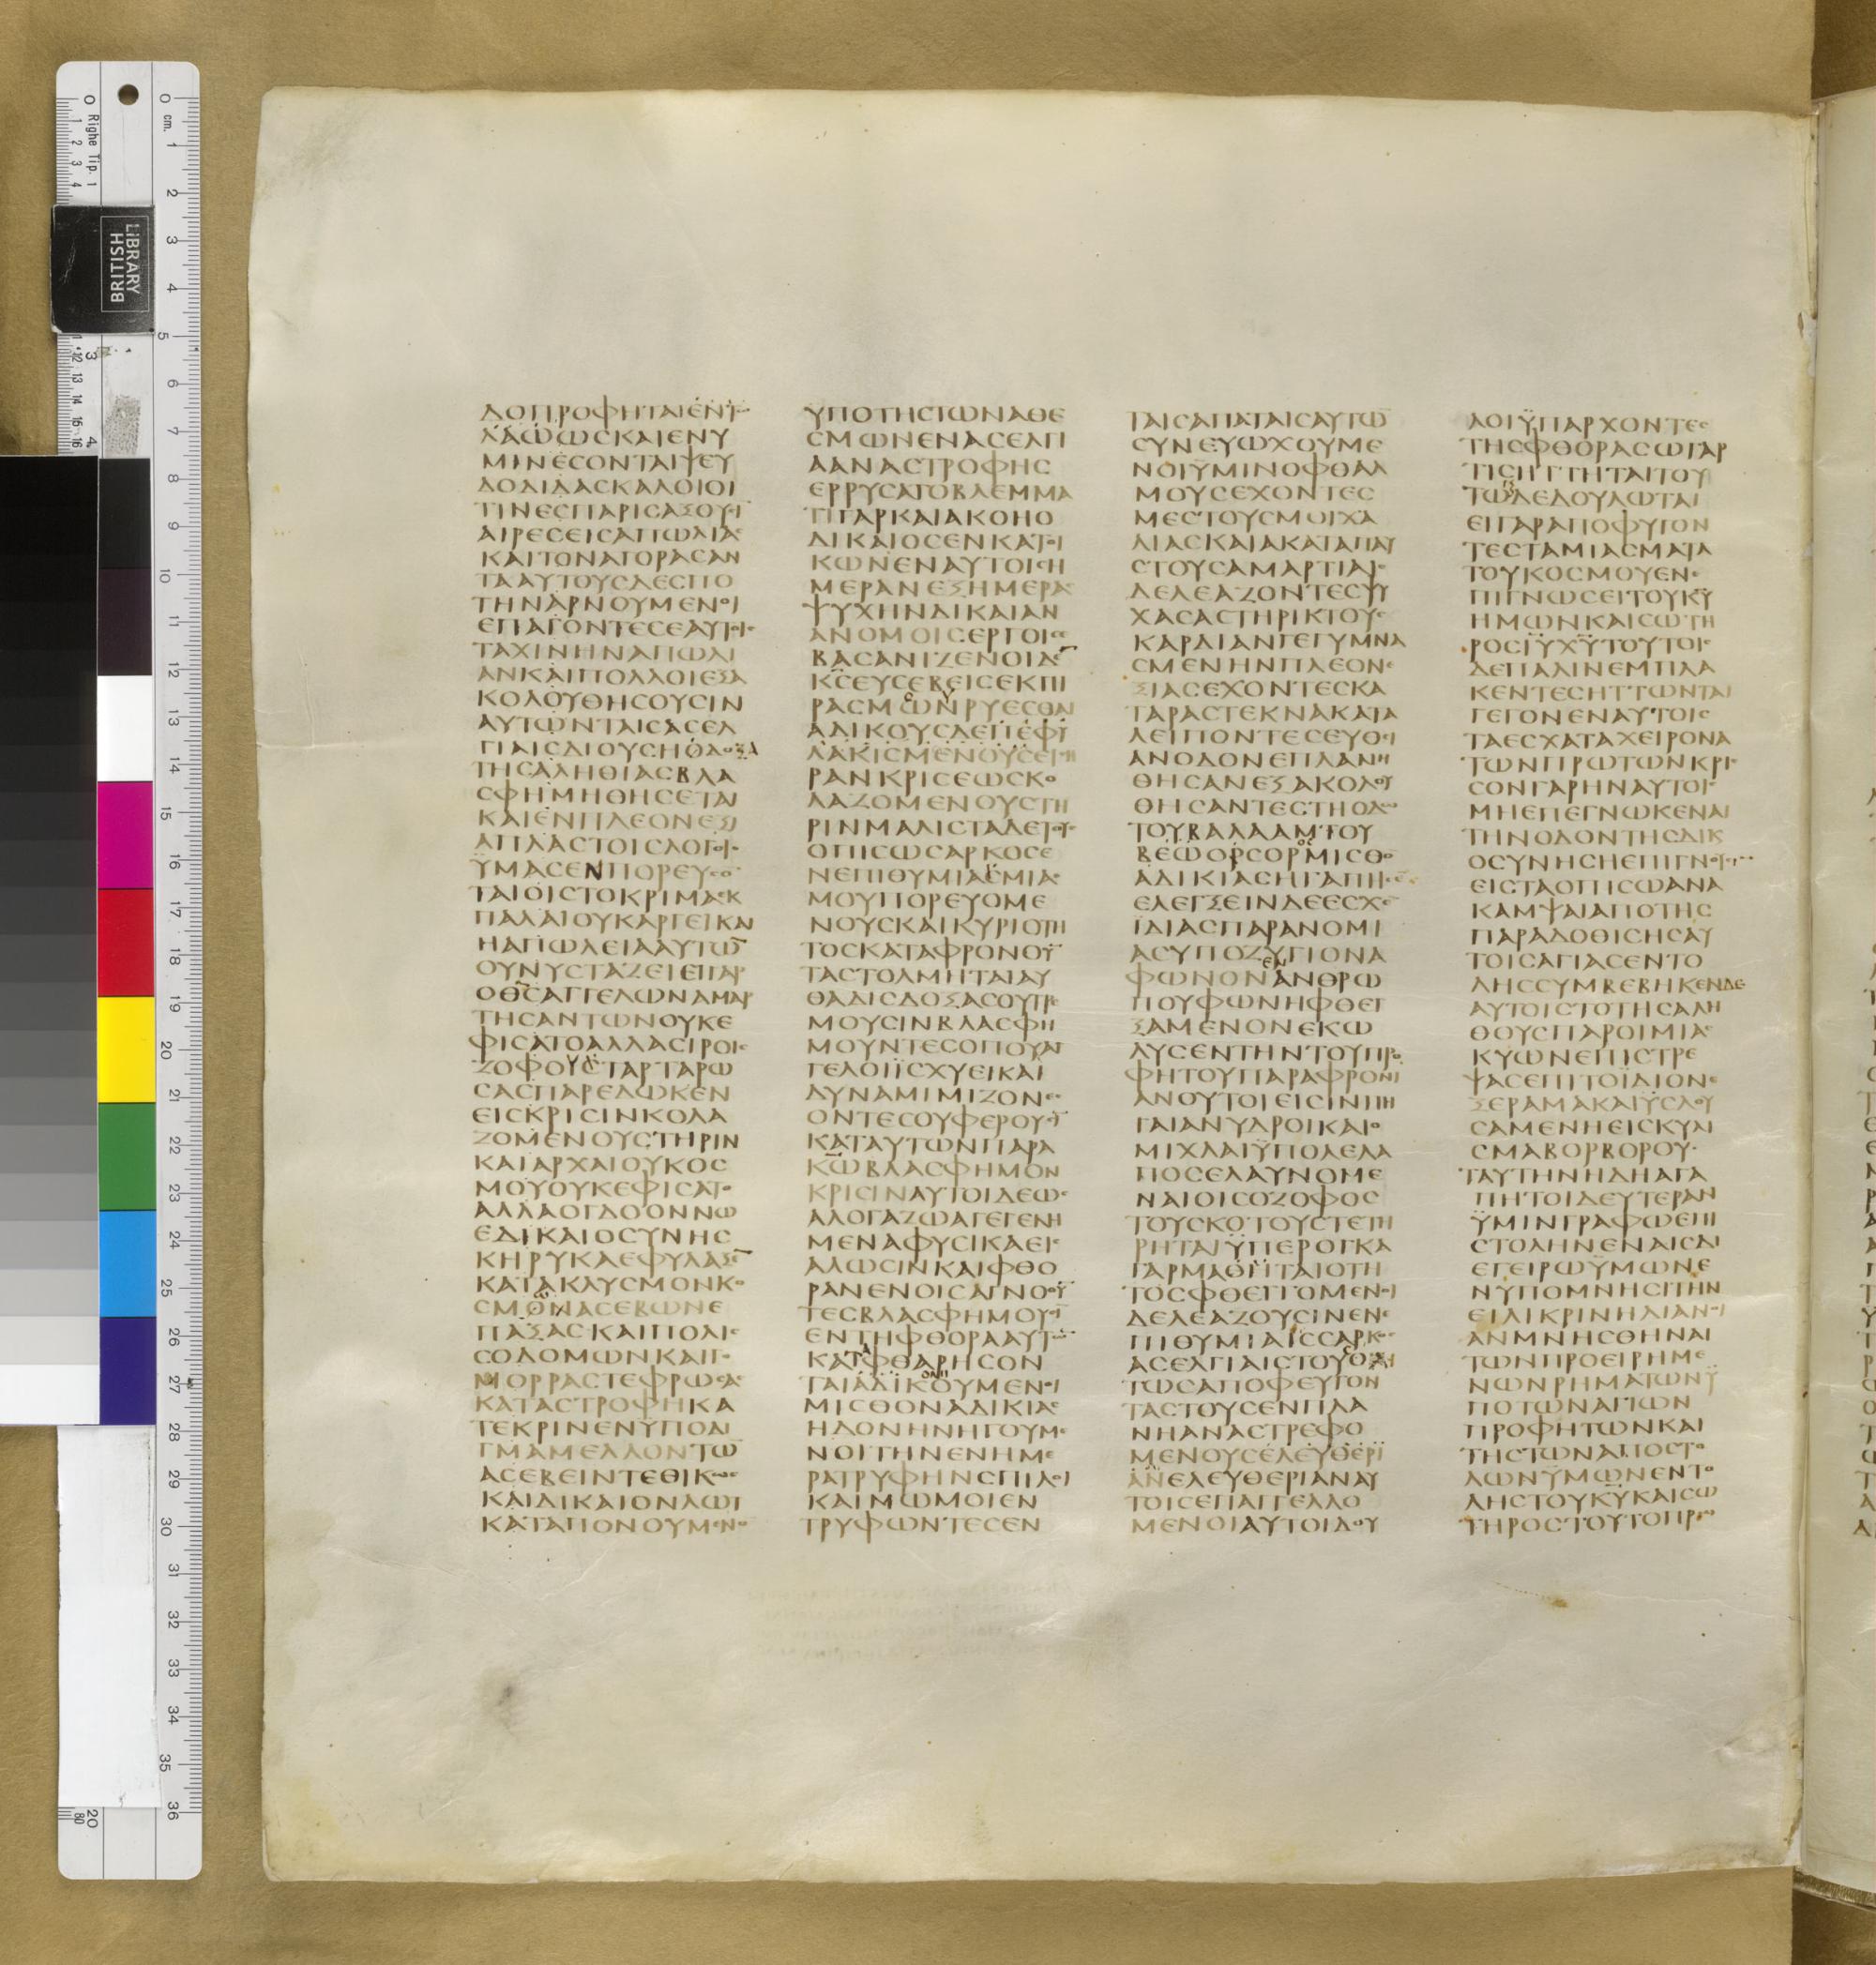 ΔΟΠΡΟΦΗΤΑΙΕΝΤ
ΛΑΩΩCΚΑΙΕΝΥ
ΜΙΝΕCΟΝΤΑΙΨΕΥ
ΔΟΔΙΔΑCΚΑΛΟΙΟΙ
ΤΙΝΕCΠΑΡΙCΑΞΟΥCΙ
ΑΙΡΕCΕΙCΑΠΩΛΙΑC
ΚΑΙΤΟΝΑΓΟΡΑCΑΝ
ΤΑΑΥΤΟΥCΔΕCΠΟ
ΤΗΝΑΡΝΟΥΜΕΝΟΙ
ΕΠΑΓΟΝΤΕCΕΑΥΤΟΙC
ΤΑΧΙΝΗΝΑΠΩΛΙ
ΑΝΚΑΙΠΟΛΛΟΙΕΞΑ
ΚΟΛΟΥΘΗCΟΥCΙΝ
ΑΥΤΩΝΤΑΙCΑCΕΛ
ΓΙΑΙCΔΙΟΥCΗΟΔΟCΞΑ
ΤΗCΑΛΗΘΙΑCΒΛΑ
CΦΗΜΗΘΗCΕΤΑΙ
ΚΑΙΕΝΠΛΕΟΝΕΞΙ
ΑΠΛΑCΤΟΙCΛΟΓΟΙC
ΫΜΑCΕΝΠΟΡΕΥCΟ
ΤΑΙΟΙCΤΟΚΡΙΜΑΕΚ
ΠΑΛΑΙΟΥΚΑΡΓΕΙΚΑΙ
ΗΑΠΩΛΕΙΑΑΥΤΩ̅
ΟΥΝΥCΤΑΖΕΙΕΙΓΑΡ
ΟΘ̅C̅ΑΓΓΕΛΩΝΑΜΑΡ
ΤΗCΑΝΤΩΝΟΥΚΕ
ΦΙCΑΤΟΑΛΛΑCΙΡΟΙC
ΖΟΦΟΥCΤΑΡΤΑΡΩ
CΑCΠΑΡΕΔΩΚΕΝ
ΕΙCΚΡΙCΙΝΚΟΛΑ
ΖΟΜΕΝΟΥCΤΗΡΙΝ
ΚΑΙΑΡΧΑΙΟΥΚΟC
ΜΟΥΟΥΚΕΦΙCΑΤΟ
ΑΛΛΑΟΓΔΟΟΝΝΩ
ΕΔΙΚΑΙΟCΥΝΗC
ΚΗΡΥΚΑΕΦΥΛΑΞΕ̅
ΚΑΤΑΚΛΥCΜΟΝΚΟ
CΜΩΝΑCΕΒΩΝΕ
ΠΑΞΑCΚΑΙΠΟΛΙC
CΟΔΟΜΩΝΚΑΙΓΟ
ΜΟΡΡΑCΤΕΦΡΩCΑC
ΚΑΤΑCΤΡΟΦΗΚΑ
ΤΕΚΡΙΝΕΝΥΠΟΔΙ
ΓΜΑΜΕΛΛΟΝΤΩ̅
ΑCΕΒΕΙΝΤΕΘΙΚΩC
ΚΑΙΔΙΚΑΙΟΝΛΩΤ
ΚΑΤΑΠΟΝΟΥΜΕΝΟ
ΥΠΟΤΗCΤΩΝΑΘΕ
CΜΩΝΕΝΑCΕΛΓΙ
ΑΑΝΑCΤΡΟΦΗC
ΕΡΡΥCΑΤΟΒΛΕΜΜΑ
ΤΙΓΑΡΚΑΙΑΚΟΗΟ
ΔΙΚΑΙΟCΕΝΚΑΤΟΙ
ΚΩΝΕΝΑΥΤΟΙCΗ
ΜΕΡΑΝΕΞΗΜΕΡΑC
ΨΥΧΗΝΔΙΚΑΙΑΝ
ΑΝΟΜΟΙCΕΡΓΟΙC
ΒΑCΑΝΙΖΕΝΟΙΔΕ̅
Κ̅C̅ΕΥCΕΒΕΙCΕΚΠΙ
ΡΑCΜΩΝΡΥΕCΘΑΙ
ΑΔΙΚΟΥCΔΕΠΕΦΥ
ΛΑΚΙCΜΕΝΟΥCΕΙCΗ
ΡΑΝΚΡΙCΕΩCΚΟ
ΛΑΖΟΜΕΝΟΥCΤΗ
ΡΙΝΜΑΛΙCΤΑΔΕΤΟΥC
ΟΠΙCΩCΑΡΚΟCΕ
ΝΕΠΙΘΥΜΙΑΕΜΙΑC
ΜΟΥΠΟΡΕΥΟΜΕ
ΝΟΥCΚΑΙΚΥΡΙΟΤΗ
ΤΟCΚΑΤΑΦΡΟΝΟΥ̅
ΤΑCΤΟΛΜΗΤΑΙΑΥ
ΘΑΔΙCΔΟΞΑCΟΥΤΡΕ
ΜΟΥCΙΝΒΛΑCΦΗ
ΜΟΥΝΤΕCΟΠΟΥΑΓ
ΓΕΛΟΙΪCΧΥΕΙΚΑΙ
ΔΥΝΑΜΙΜΙΖΟΝΕC
ΟΝΤΕCΟΥΦΕΡΟΥCΙ
ΚΑΤΑΥΤΩΝΠΑΡΑ
ΚΩ̅ΒΛΑCΦΗΜΟΝ
ΚΡΙCΙΝΑΥΤΟΙΔΕΩC
ΑΛΟΓΑΖΩΑΓΕΓΕΝΗ
ΜΕΝΑΦΥCΙΚΑΕΙC
ΑΛΩCΙΝΚΑΙΦΘΟ
ΡΑΝΕΝΟΙCΑΓΝΟΟΥ̅
ΤΕCΒΛΑCΦΗΜΟΥCΙ
ΕΝΤΗΦΘΟΡΑΑΥΤΩ̅
ΚΑΤΑΦΘΑΡΗCΟΝ
ΤΑΙΑΔΙΚΟΥΜΕΝΟΙ
ΜΙCΘΟΝΑΔΙΚΙΑC
ΗΔΟΝΗΝΗΓΟΥΜΕ
ΝΟΙΤΗΝΕΝΗΜΕ
ΡΑΤΡΥΦΗΝCΠΙΛΟΙ
ΚΑΙΜΩΜΟΙΕΝ
ΤΡΥΦΩΝΤΕCΕΝ
ΤΑΙCΑΠΑΤΑΙCΑΥΤΩ̅
CΥΝΕΥΩΧΟΥΜΕ
ΝΟΙΫΜΙΝΟΦΘΑΛ
ΜΟΥCΕΧΟΝΤΕC
ΜΕCΤΟΥCΜΟΙΧΑ
ΛΙΑCΚΑΙΑΚΑΤΑΠΑΥ
CΤΟΥCΑΜΑΡΤΙΑΙC
ΔΕΛΕΑΖΟΝΤΕCΨΥ
ΧΑCΑCΤΗΡΙΚΤΟΥC
ΚΑΡΔΙΑΝΓΕΓΥΜΝΑ
CΜΕΝΗΝΠΛΕΟΝΕ
ΞΙΑCΕΧΟΝΤΕCΚΑ
ΤΑΡΑCΤΕΚΝΑΚΑΤΑ
ΛΕΙΠΟΝΤΕCΕΥΘΕΙ
ΑΝΟΔΟΝΕΠΛΑΝΗ
ΘΗCΑΝΕΞΑΚΟΛΟΥ
ΘΗCΑΝΤΕCΤΗΟΔΩ
ΤΟΥΒΑΛΑΑΜΤΟΥ
ΒΕΩΟΡCΟΡΜΙCΘΟ
ΑΔΙΚΙΑCΗΓΑΠΗCΕ
ΕΛΕΓΞΕΙΝΔΕΕCΧΕ
ΪΔΙΑCΠΑΡΑΝΟΜΙ
ΑCΥΠΟΖΥΓΙΟΝΑ
ΦΩΝΟΝΕΝΑΝΘΡΩ
ΠΟΥΦΩΝΗΦΘΕΓ
ΞΑΜΕΝΟΝΕΚΩ
ΛΥCΕΝΤΗΝΤΟΥΠΡΟ
ΦΗΤΟΥΠΑΡΑΦΡΟΝΙ
ΑΝΟΥΤΟΙΕΙCΙΝΠΗ
ΓΑΙΑΝΥΔΡΟΙΚΑΙΟ
ΜΙΧΛΑΙΫΠΟΛΕΛΑ
ΠΟCΕΛΑΥΝΟΜΕ
ΝΑΙΟΙCΟΖΟΦΟC
ΤΟΥCΚΟΤΟΥCΤΕΤΗ
ΡΗΤΑΙΫΠΕΡΟΓΚΑ
ΓΑΡΜΑΘΗΤΑΙΟΤΗ
ΤΟCΦΘΕΓΓΟΜΕΝΟΙ
ΔΕΛΕΑΖΟΥCΙΝΕΝΕ
ΠΙΘΥΜΙΑΙCCΑΡΚΟC
ΑCΕΛΓΙΑΙCΤΟΥCΟΛΙ
ΓΩCΑΠΟΦΕΥΓΟΝ
ΤΑCΤΟΥCΕΝΠΛΑ
ΝΗΑΝΑCΤΡΕΦΟ
ΜΕΝΟΥCΕΛΕΥΘΕΡΙ
ΑΝΕΛΕΥΘΕΡΙΑΝΑΥ
ΤΟΙCΕΠΑΓΓΕΛΛΟ
ΜΕΝΟΙΑΥΤΟΙΔΟΥ
ΛΟΙΫΠΑΡΧΟΝΤΕC
ΤΗCΦΘΟΡΑCΩΓΑΡ
ΤΙCΗΤΤΗΤΑΙΤΟΥ
ΤΩΔΕΔΟΥΛΩΤΑΙ
ΕΙΓΑΡΑΠΟΦΥΓΟΝ
ΤΕCΤΑΜΙΑCΜΑΤΑ
ΤΟΥΚΟCΜΟΥΕΝΕ
ΠΙΓΝΩCΕΙΤΟΥΚ̅Υ̅
ΗΜΩΝΚΑΙCΩΤΗ
ΡΟCΙ̅Υ̅Χ̅Υ̅ΤΟΥΤΟΙC
ΔΕΠΑΛΙΝΕΜΠΛΑ
ΚΕΝΤΕCΗΤΤΩΝΤΑΙ
ΓΕΓΟΝΕΝΑΥΤΟΙC
ΤΑΕCΧΑΤΑΧΕΙΡΟΝΑ
ΤΩΝΠΡΩΤΩΝΚΡΙC
CΟΝΓΑΡΗΝΑΥΤΟΙC
ΜΗΕΠΕΓΝΩΚΕΝΑΙ
ΤΗΝΟΔΟΝΤΗCΔΙΚ
ΟCΥΝΗCΗΕΠΙΓΝΟΥCΙ
ΕΙCΤΑΟΠΙCΩΑΝΑ
ΚΑΜΨΑΙΑΠΟΤΗC
ΠΑΡΑΔΟΘΙCΗCΑΥ
ΤΟΙCΑΓΙΑCΕΝΤΟ
ΛΗCCΥΜΒΕΒΗΚΕΝΔΕ
ΑΥΤΟΙCΤΟΤΗCΑΛΗ
ΘΟΥCΠΑΡΟΙΜΙΑC
ΚΥΩΝΕΠΙCΤΡΕ
ΨΑCΕΠΙΤΟΪΔΙΟΝΕ
ΞΕΡΑΜΑΚΑΙΫCΛΟΥ
CΑΜΕΝΗΕΙCΚΥΛΙ
CΜΑΒΟΡΒΟΡΟΥ
ΤΑΥΤΗΝΗΔΗΑΓΑ
ΠΗΤΟΙΔΕΥΤΕΡΑΝ
ΫΜΙΝΓΡΑΦΩΕΠΙ
CΤΟΛΗΝΕΝΑΙCΔΙ
ΕΓΕΙΡΩΥΜΩΝΕ
ΝΥΠΟΜΝΗCΙΤΗΝ
ΕΙΛΙΚΡΙΝΗΔΙΑΝΟΙ
ΑΝΜΝΗCΘΗΝΑΙ
ΤΩΝΠΡΟΕΙΡΗΜΕ
ΝΩΝΡΗΜΑΤΩΝΫ
ΠΟΤΩΝΑΓΙΩΝ
ΠΡΟΦΗΤΩΝΚΑΙ
ΤΗCΤΩΝΑΠΟCΤΟ
ΛΩΝΥΜΩΝΕΝΤΟ
ΛΗCΤΟΥΚ̅Υ̅ΚΑΙCΩ
ΤΗΡΟCΤΟΥΤΟΠΡΩ
BRITISH
LIBRARY
Righe Tip. 1
cm.